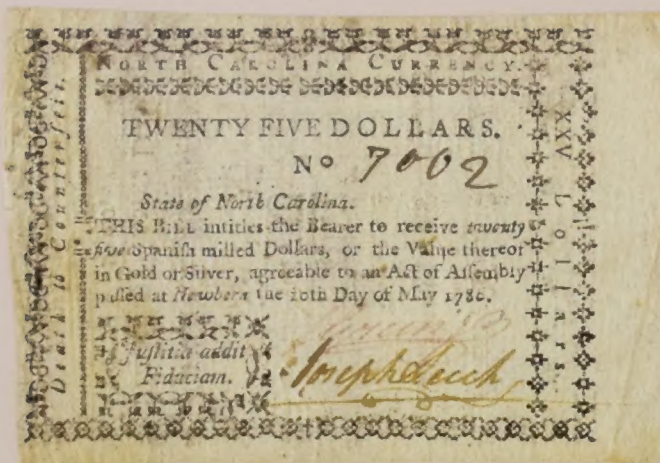 NORTH CAROLINA CURRENCY.
TWENTY FIVE DOLLARS.
No 7002
State of North Carolina.
THIS BILL intitles the Bearer to receive twenty
five Spaniſh milled Dollars, or the Value thereof
in Gold or Silver, agreeable to an Act of Aſſembly
paſſed at Newbern the 10th Day of May 1780.
Juſtitia addit
Fiduciam.
Joseph Leech
Death to Counterfeit.
XXV Dollars.